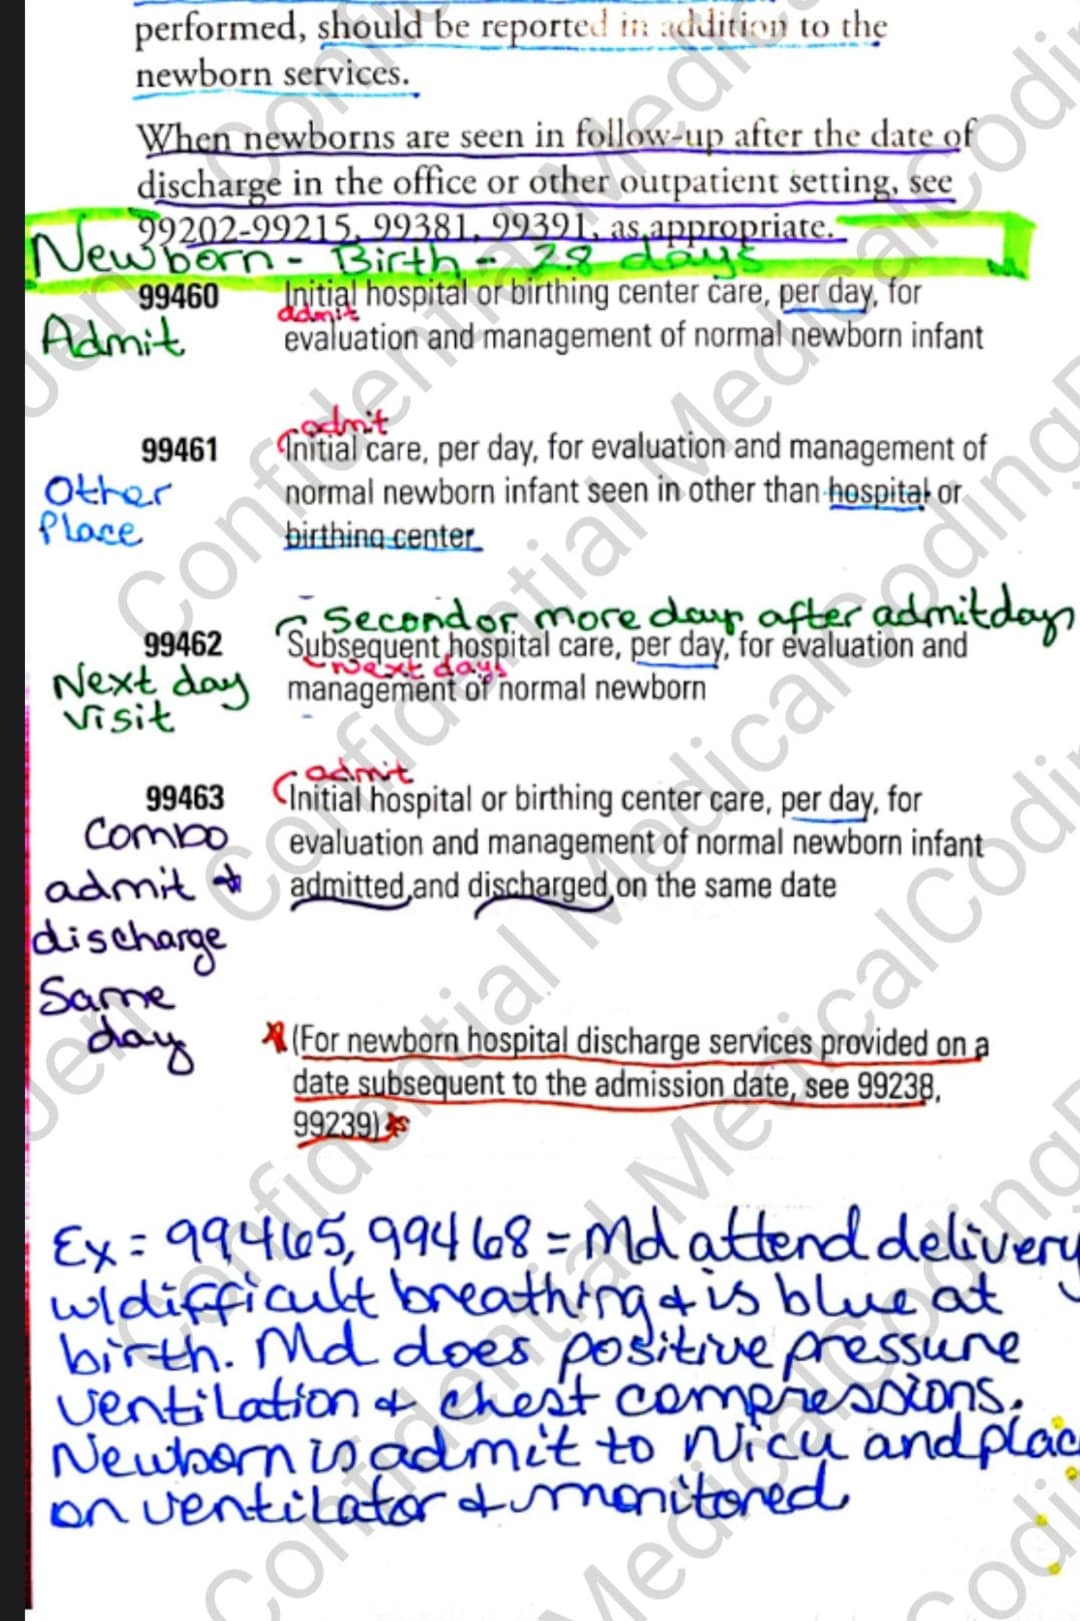 performed, should be reported in addition to the
newborn services.
When newborns are seen in follow-up after the date of
discharge in the office or other outpatient setting, see
99202-99215, 99381, 99391, as appropriate.
Newborn - Birth - 28 days
99460 Initial hospital or birthing center care, per day, for
admit
Admit evaluation and management of normal newborn infant
admit
99461 Initial care, per day, for evaluation and management of
Other normal newborn infant seen in other than hospital or
Place birthing center
Second or more days after admit day
99462 Subsequent hospital care, per day, for evaluation and
next days
Next day management of normal newborn
visit
admit
99463 Initial hospital or birthing center care, per day, for
Combo evaluation and management of normal newborn infant
admit + admitted and discharged on the same date
discharge
Same
day
(For newborn hospital discharge services provided on a
date subsequent to the admission date, see 99238,
99239)
Ex = 99465, 99468 = Md attend delivery
w/difficult breathing & is blue at
birth. Md does positive pressure
ventilation & chest compressions.
Newborn is admit to Nicu and plac
on ventilator & monitored
Confidential MedicalCoding